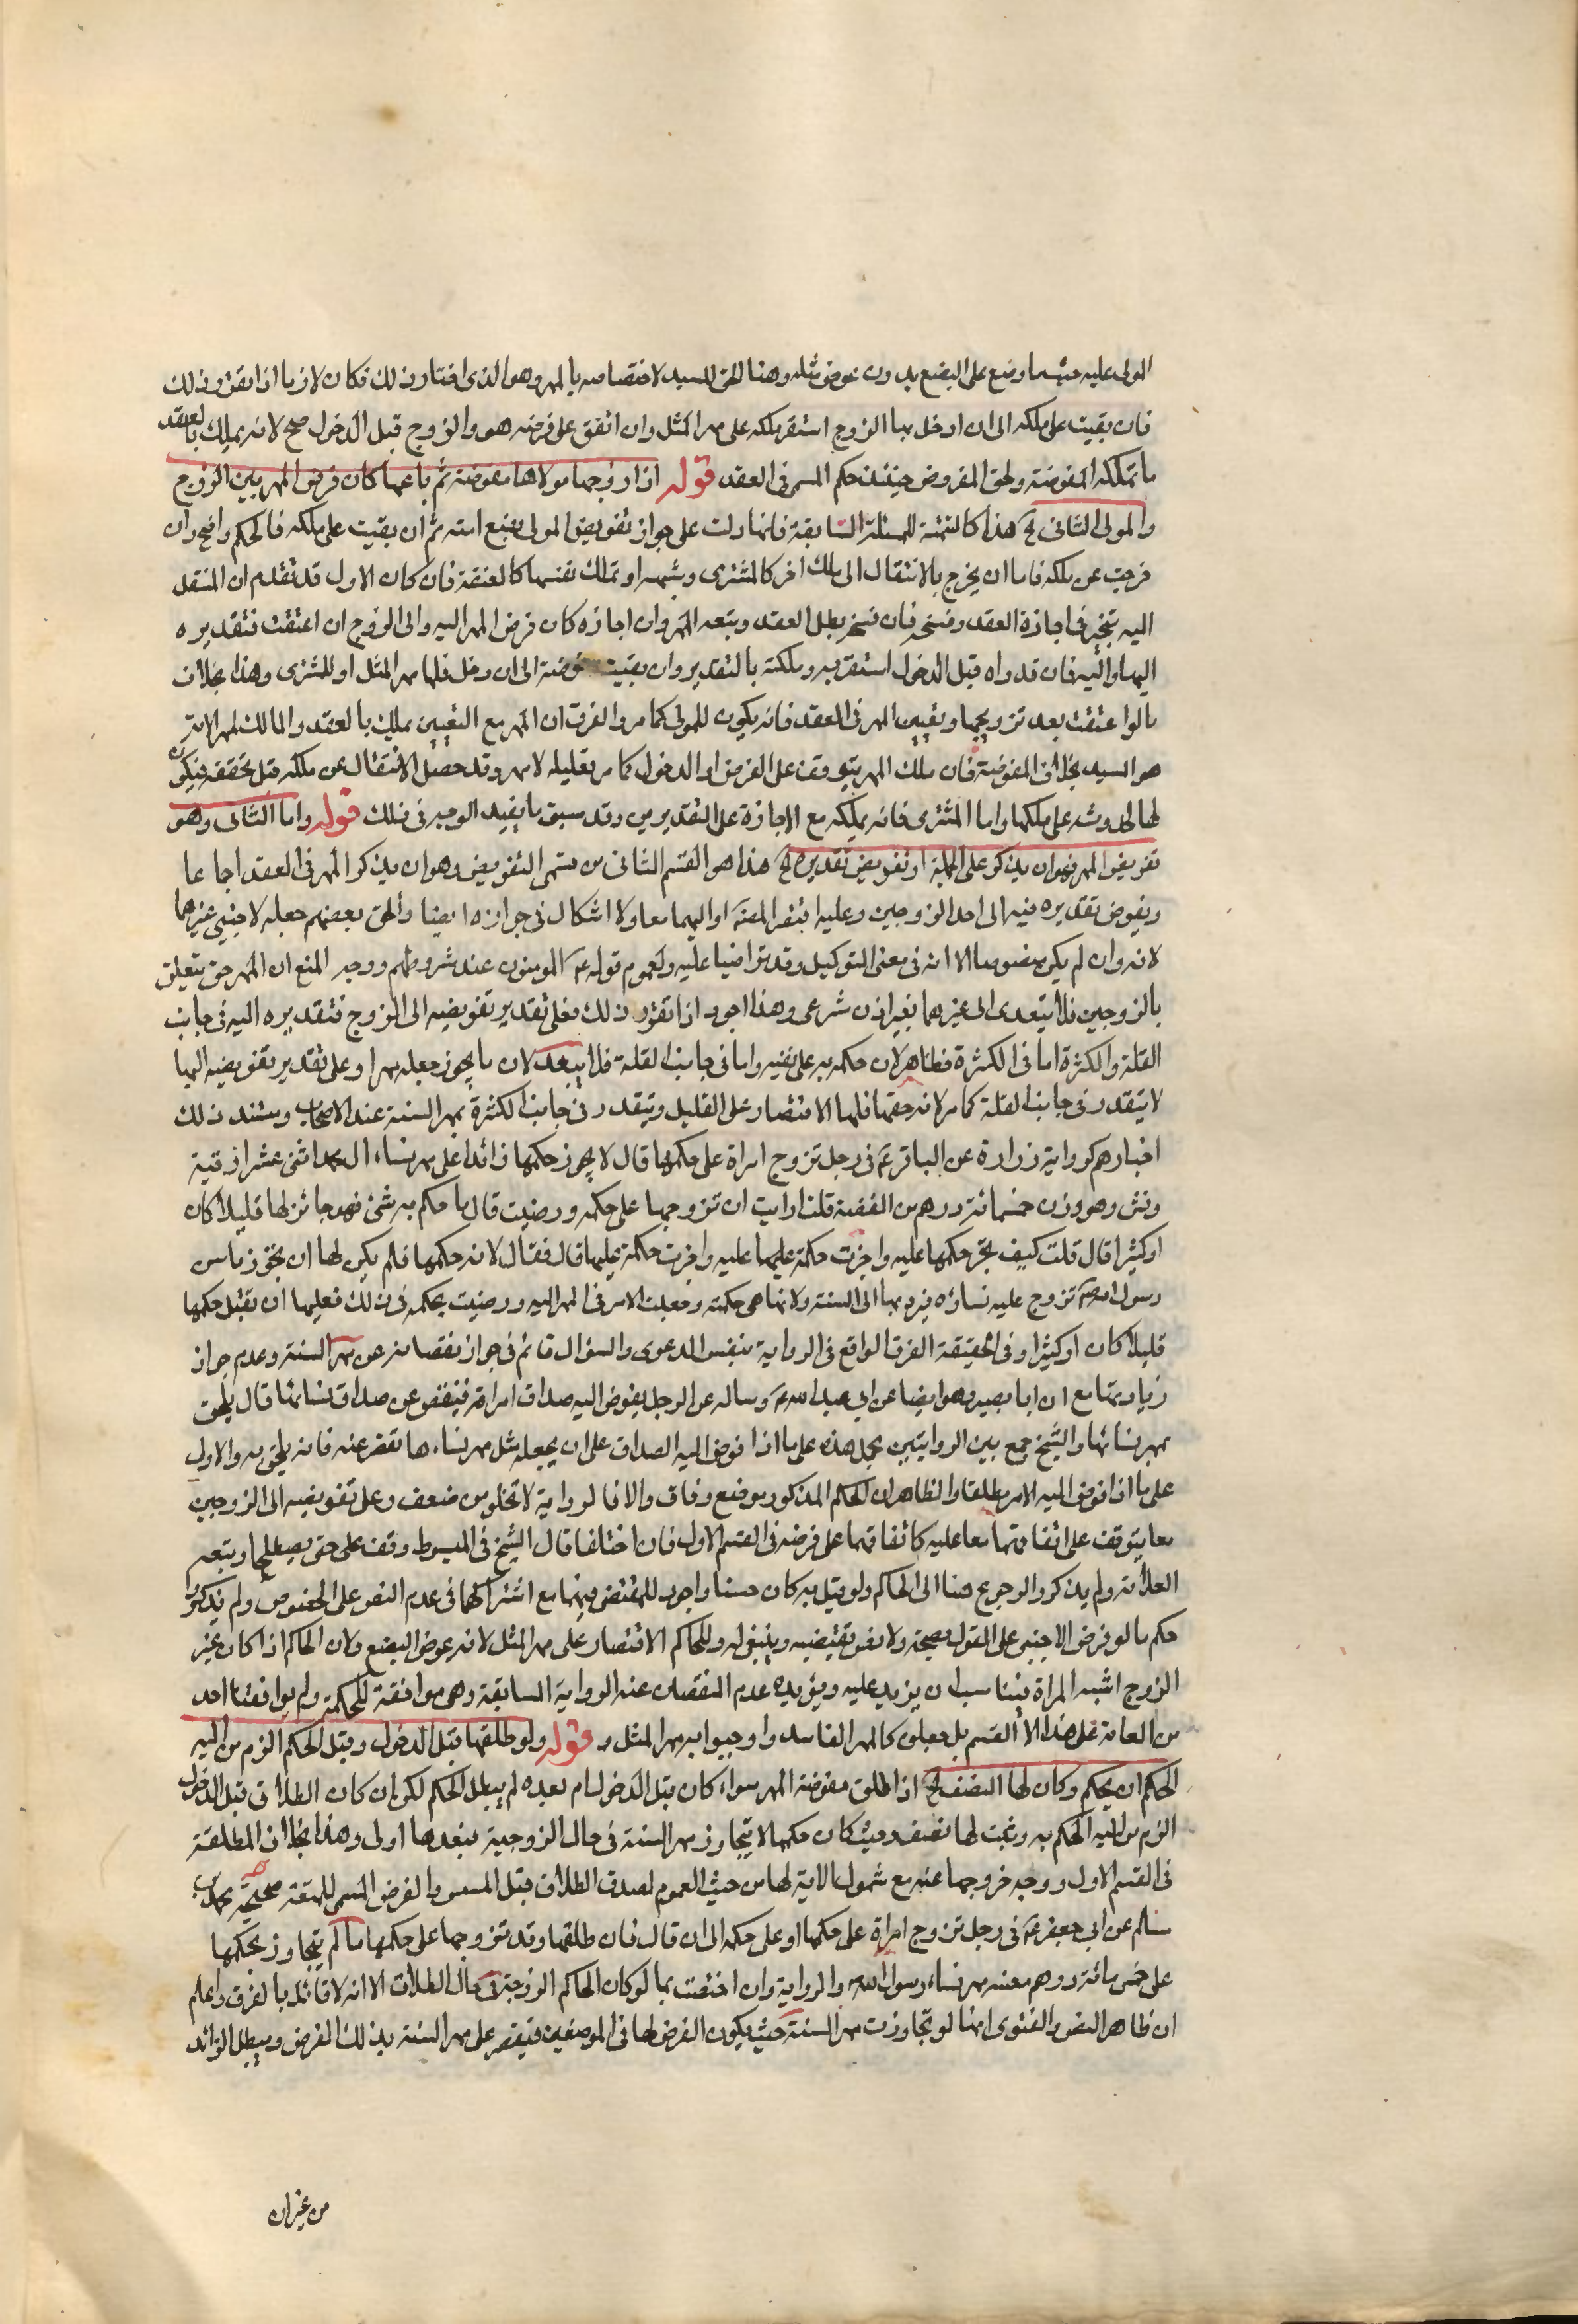 المولى عليه حيثما وضع على البضع بدون عوض مثله وهنا الحق للسيد لاختصاصه بالمهر وهو الذي اختار ذلك فكان لازما اذا تقرر ذلك
فان بقيت على ملكه الى ان دخل بها الزوج استقر ملكه على مهر المثل وان اتفق على فرضه هو والزوج قبل الدخول صح لانه يملك بالعقد
ما تملكه المفوضة ولحق المفروض حينئذ حكم المسمى فى العقد قوله اذا زوجها مولاها مفوضة ثم باعها كان فرض المهر بين الزوج
والمولى الثانى الخ هذا كالتتمة للمسئلة السابقة فانها دلت على جواز تفويض المولى بضع امته ثم ان بقيت على ملكه فالحكم واضح وان
خرجت عن ملكه فاما ان يخرج بالانتقال الى ملك اخر كالمشترى وشبهه او تملك نفسها كالمعتقة فان كان الاول قد تقدم ان المنتقل
اليه يتخير فى اجازة العقد وفسخه فان فسخ بطل العقد وتبعه المهر وان اجازه كان فرض المهر اليه والى الزوج ان اعتقت فتقديره
اليها واليه فان قدراه قبل الدخول استقر به وملكته بالتقدير وان بقيت مفوضة الى ان دخل فلها مهر المثل او للمشترى وهذا بخلاف
ما لو اعتقت بعد تزويجها وتعيين المهر فى العقد فانه يكون للمولى كما مر والفرق ان المهر مع التعيين يملك بالعقد والمالك لمهر الامة
هو السيد بخلاف المفوضة فان ملك المهر يتوقف على الفرض او الدخول كما مر تعليله لا مهر وقد حصل الانتقال عن ملكه قبل تحققه فيكون
لها لحدوثه على ملكها واما المشترى فانه يملكه مع الاجازة على التقديرين وقد سبق ما يفيد الوجه فى ذلك قوله واما الثانى وهو
تفويض المهر فهو ان يذكر على الجملة او تفويض تقديره الخ هذا هو القسم الثانى من قسمى التفويض وهو ان يذكر المهر فى العقد اجماعا
ويفوض تقديره فيه الى احد الزوجين وعليه اقتصر المصنف او اليهما معا ولا اشكال فى جوازه ايضا والحق بعضهم جعله لاجنبى غيرهما
لانه وان لم يكن منصوصا الا انه فى معنى التوكيل وقد تراضيا عليه ولعموم قوله ع المومنون عند شروطهم ووجه المنع ان المهر حق يتعلق
بالزوجين فلا يتعدى الى غيرهما بغير اذن شرعى وهذا اجود اذا تقرر ذلك فعلى تقدير تفويضه الى الزوج فتقديره اليه فى جانب
القلة والكثرة اما فى الكثرة فظاهر لان حكمه به على نفسه واما فى جانب القلة فلا يبعد لان ما يجوز جعله مهرا وعلى تقدير تفويضه اليها
لا يتقدر فى جانب القلة كما مر لانه حقها فلها الاقتصار على القليل ويتقدر فى جانب الكثرة بمهر السنة عند الاصحاب ومستند ذلك
اخبارهم كرواية زرارة عن الباقر ع فى رجل تزوج امراة على حكمها قال لا يجوز حكمها زائدا على مهر نساء ال محمد اثنى عشر اوقية
ونش وهو وزن خمسمائة درهم من الفضة قلت ارايت ان تزوجها على حكمه ورضيت قال ما حكم به شئ فهو جائز لها قليلا كان
او كثيرا قال قلت كيف يجز حكمها عليه واجزت حكمه عليها قال فقال لانه حكمها فلم يكن لها ان تجوز ما سن
رسول الله ص وتزوج عليه نساؤه فردها الى السنة ولانها هى حكمته وجعلت الامر فى المهر اليه ورضيت بحكمه فى ذلك فعليها ان تقبل حكمها
قليلا كان او كثيرا وفى الحقيقة الفرق الواقع فى الرواية بنفس الدعوى والسؤال قائم فى جواز نقصانه عن مهر السنة وعدم جواز
زيادتها مع ان ابا بصير وهو ايضا عن ابى عبد الله ع وساله عن الرجل يفوض اليه صداق امراته فينقص عن صداق نسائها قال يلحق
بمهر نسائها والشيخ جمع بين الروايتين بحمل هذه على ما اذا فوض اليه الصداق على ان يجعله مثل مهر نساءها فقصر عنه فانه يلحق به والاول
على ما اذا فوض اليه الامر مطلقا والظاهر ان الحكم المذكور موضع وفاق والا فالرواية لا تخلو من ضعف وعلى تفويضه الى الزوجين
معا يتوقف على اتفاقهما معا عليه كاتفاقهما على فرضه فى القسم الاول فان اختلفا قال الشيخ فى المبسوط وقف على حتى يصطلحا وتبعه
العلامة ولم يذكروا الرجوع هنا الى الحاكم ولو قيل به كان حسنا واجود للمقتضى فيهما مع اشتراكهما فى عدم النص على الخصوص ولم يذكروا
حكم ما لو فرض الاجنبى على القول بصحته ولا نص يقتضيه وينبغى له وللحاكم الاقتصار على مهر المثل لانه عوض البضع ولان الحاكم اذا كان غير
الزوج اشبه المراة فيناسب ان يزيد عليه ويؤيده عدم النقصان عنه الرواية السابقة وهى موافقة للحكمة ولم يوافقنا احد
من العامة على هذا القسم بل جعلوه كالمهر الفاسد واوجبوا به مهر المثل قوله ولو طلقها قبل الدخول وقبل الحكم الزم من اليه
الحكم ان يحكم وكان لها النصف الخ اذا طلق مفوضة المهر سواء كان قبل الدخول ام بعده لم يبطل الحكم لكن ان كان الطلاق قبل الدخول
الزم من اليه الحكم به وثبت لها نصفه وحيث كان حكمها لا يتجاوز مهر السنة فى حال الزوجية فبعدها اولى وهذا بخلاف المطلقة
فى القسم الاول ووجه خروجها عنه مع شمول الاية لها من حيث العموم لصدق الطلاق قبل المسيس والفرض المسمى للمتعة صحيحة محمد بن
مسلم عن ابى جعفر ع فى رجل تزوج امراة على حكمها او على حكمه الى ان قال فان طلقها وقد تزوجها على حكمها ما لم يتجاوز بحكمها
على خمس مائة درهم مهر نساء رسول الله والرواية وان اختصت بما لو كان الحاكم الزوجة فى حال الطلاق الا انه لا قائل بالفرق واعلم
ان ظاهر النص والفتوى انها لو تجاوزت مهر السنة حيث يكون الفرض لها فى الموضعين فيقصر على مهر السنة بذلك الفرض ويبطل الزائد
من غير ان